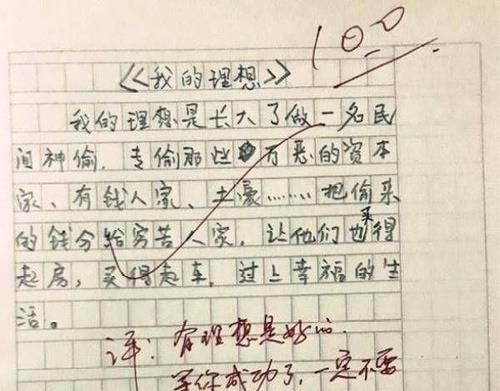 100
《我的理想》
我的理想是长大了做一名民
间神偷,专偷那些万恶的资本
家、有钱人家、土豪……把偷来
的钱分给穷苦人家,让他们也买得
起房,买得起车,过上幸福的生
活。
评:有理想是好的.
等你成功了,一定不要